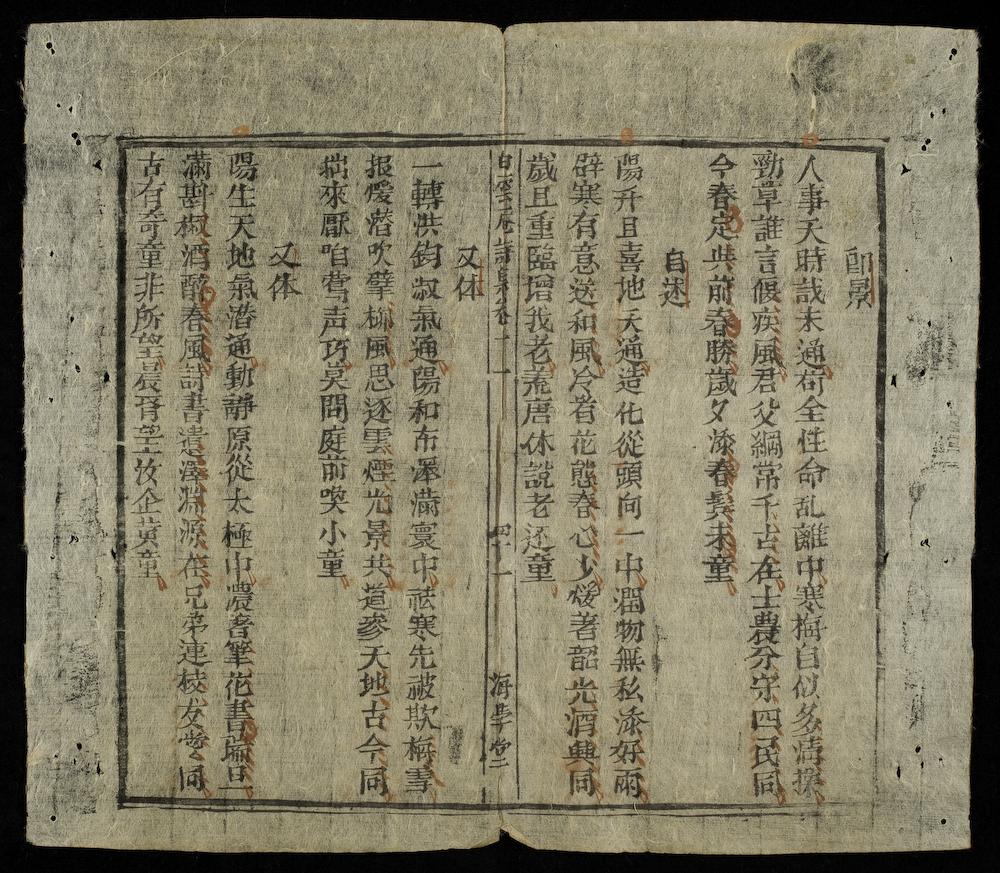 即景
人事天時哉未通苟全性命乱離中寒梅自似多清操
勁草誰言偃疾風君父綱常千古在士農分守四民同
今春定共前春勝歲夕添春鬓未童
自述
陽升且喜地天通造化從頭向一中潤物無私添好雨
辟寒有意送和風冷者花態春心少煖著韶光酒興同
歲且重臨增我老荒唐休說老还童
白雲庵詩集卷二 四十一 海學堂
又体
一轉洪鈞淑氣通陽和布澤滿寰中祛寒先被欺梅雪
报煖潜吹擘柳風思逐雲煙光景共道參天地古今同
拙來厭咱莺声巧莫問庭前喚小童
又体
陽生天地氣潜通動靜原從太極中濃著筆花書瑞旦
滿斟椒酒醉春風詩書遺澤淵源在兄弟連枝友爱同
古有奇童非所望晨昏望汝企黄童